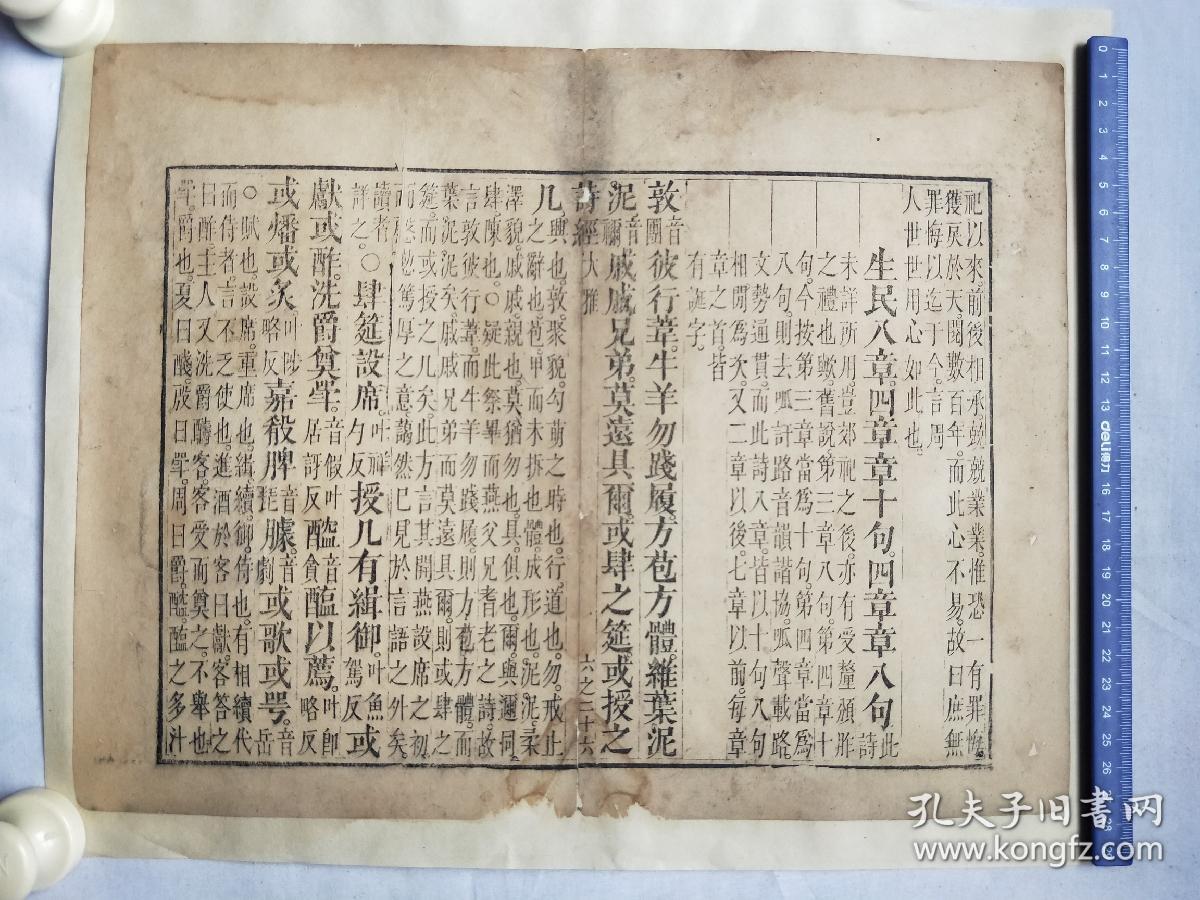 祀以來。前後相承。兢兢業業。惟恐一有罪悔。
獲戾於天。閱數百年。而此心不易。故曰庶無
罪悔。以迄于今。言周
人世世用心如此也。
生民八章。四章章十句。四章章八句。此詩
未詳所用。豈郊祀之後。亦有受釐頒胙
之禮也歟。舊說第三章八句。第四章十
句。今按第三章當爲十句。第四章當爲
八句。則去呱訏路音韻諧協。呱聲載路。
文勢通貫。而此詩八章。皆以十句八句
相閒爲次。又二章以後。七章以前。每章
章之首。皆
有誕字。
敦音團彼行葦。牛羊勿踐履。方苞方體。維葉泥
泥。音禰戚戚兄弟。莫遠具爾。或肆之筵。或授之
詩經 大雅 六之二十六
几。興也。敦。聚貌。勾萌之時也。行。道也。勿。戒止
之辭也。苞。甲而未拆也。體。成形也。泥泥。柔
澤貌。戚戚。親也。莫。猶勿也。具。俱也。爾。與邇同。
肆。陳也。○疑此祭畢而燕父兄耆老之詩。故
言敦彼行葦。而牛羊勿踐履。則方苞方體。而
葉泥泥矣。戚戚兄弟。而莫遠具爾。則或肆之
筵。而或授之几矣。此方言其開燕設席之初。
而慇懃篤厚之意。藹然已見於言語之外矣。
讀者詳之。○肆筵設席。叶祥勺反授几有緝御。叶魚駕反或
獻或酢。洗爵奠斝。音假叶居訝反醓音貪醢以薦。叶即略反
或燔或炙。叶陟略反嘉殽脾音琵臄。音劇或歌或咢。音岳
○賦也。設席。重席也。緝。續。御。侍也。有相續代
而侍者。言不乏使也。進酒於客曰獻。客答之
曰酢。主人又洗爵醻客。客受而奠之。不舉也。
斝。爵也。夏曰醆。殷曰斝。周曰爵。醓。醢之多汁
0 1 2 3 4 5 6 7 8 9 10 11 12 13 deli得力 16 17 18 19 20 21 22 23 24 25 26
孔夫子旧書网
www.kongfz.com